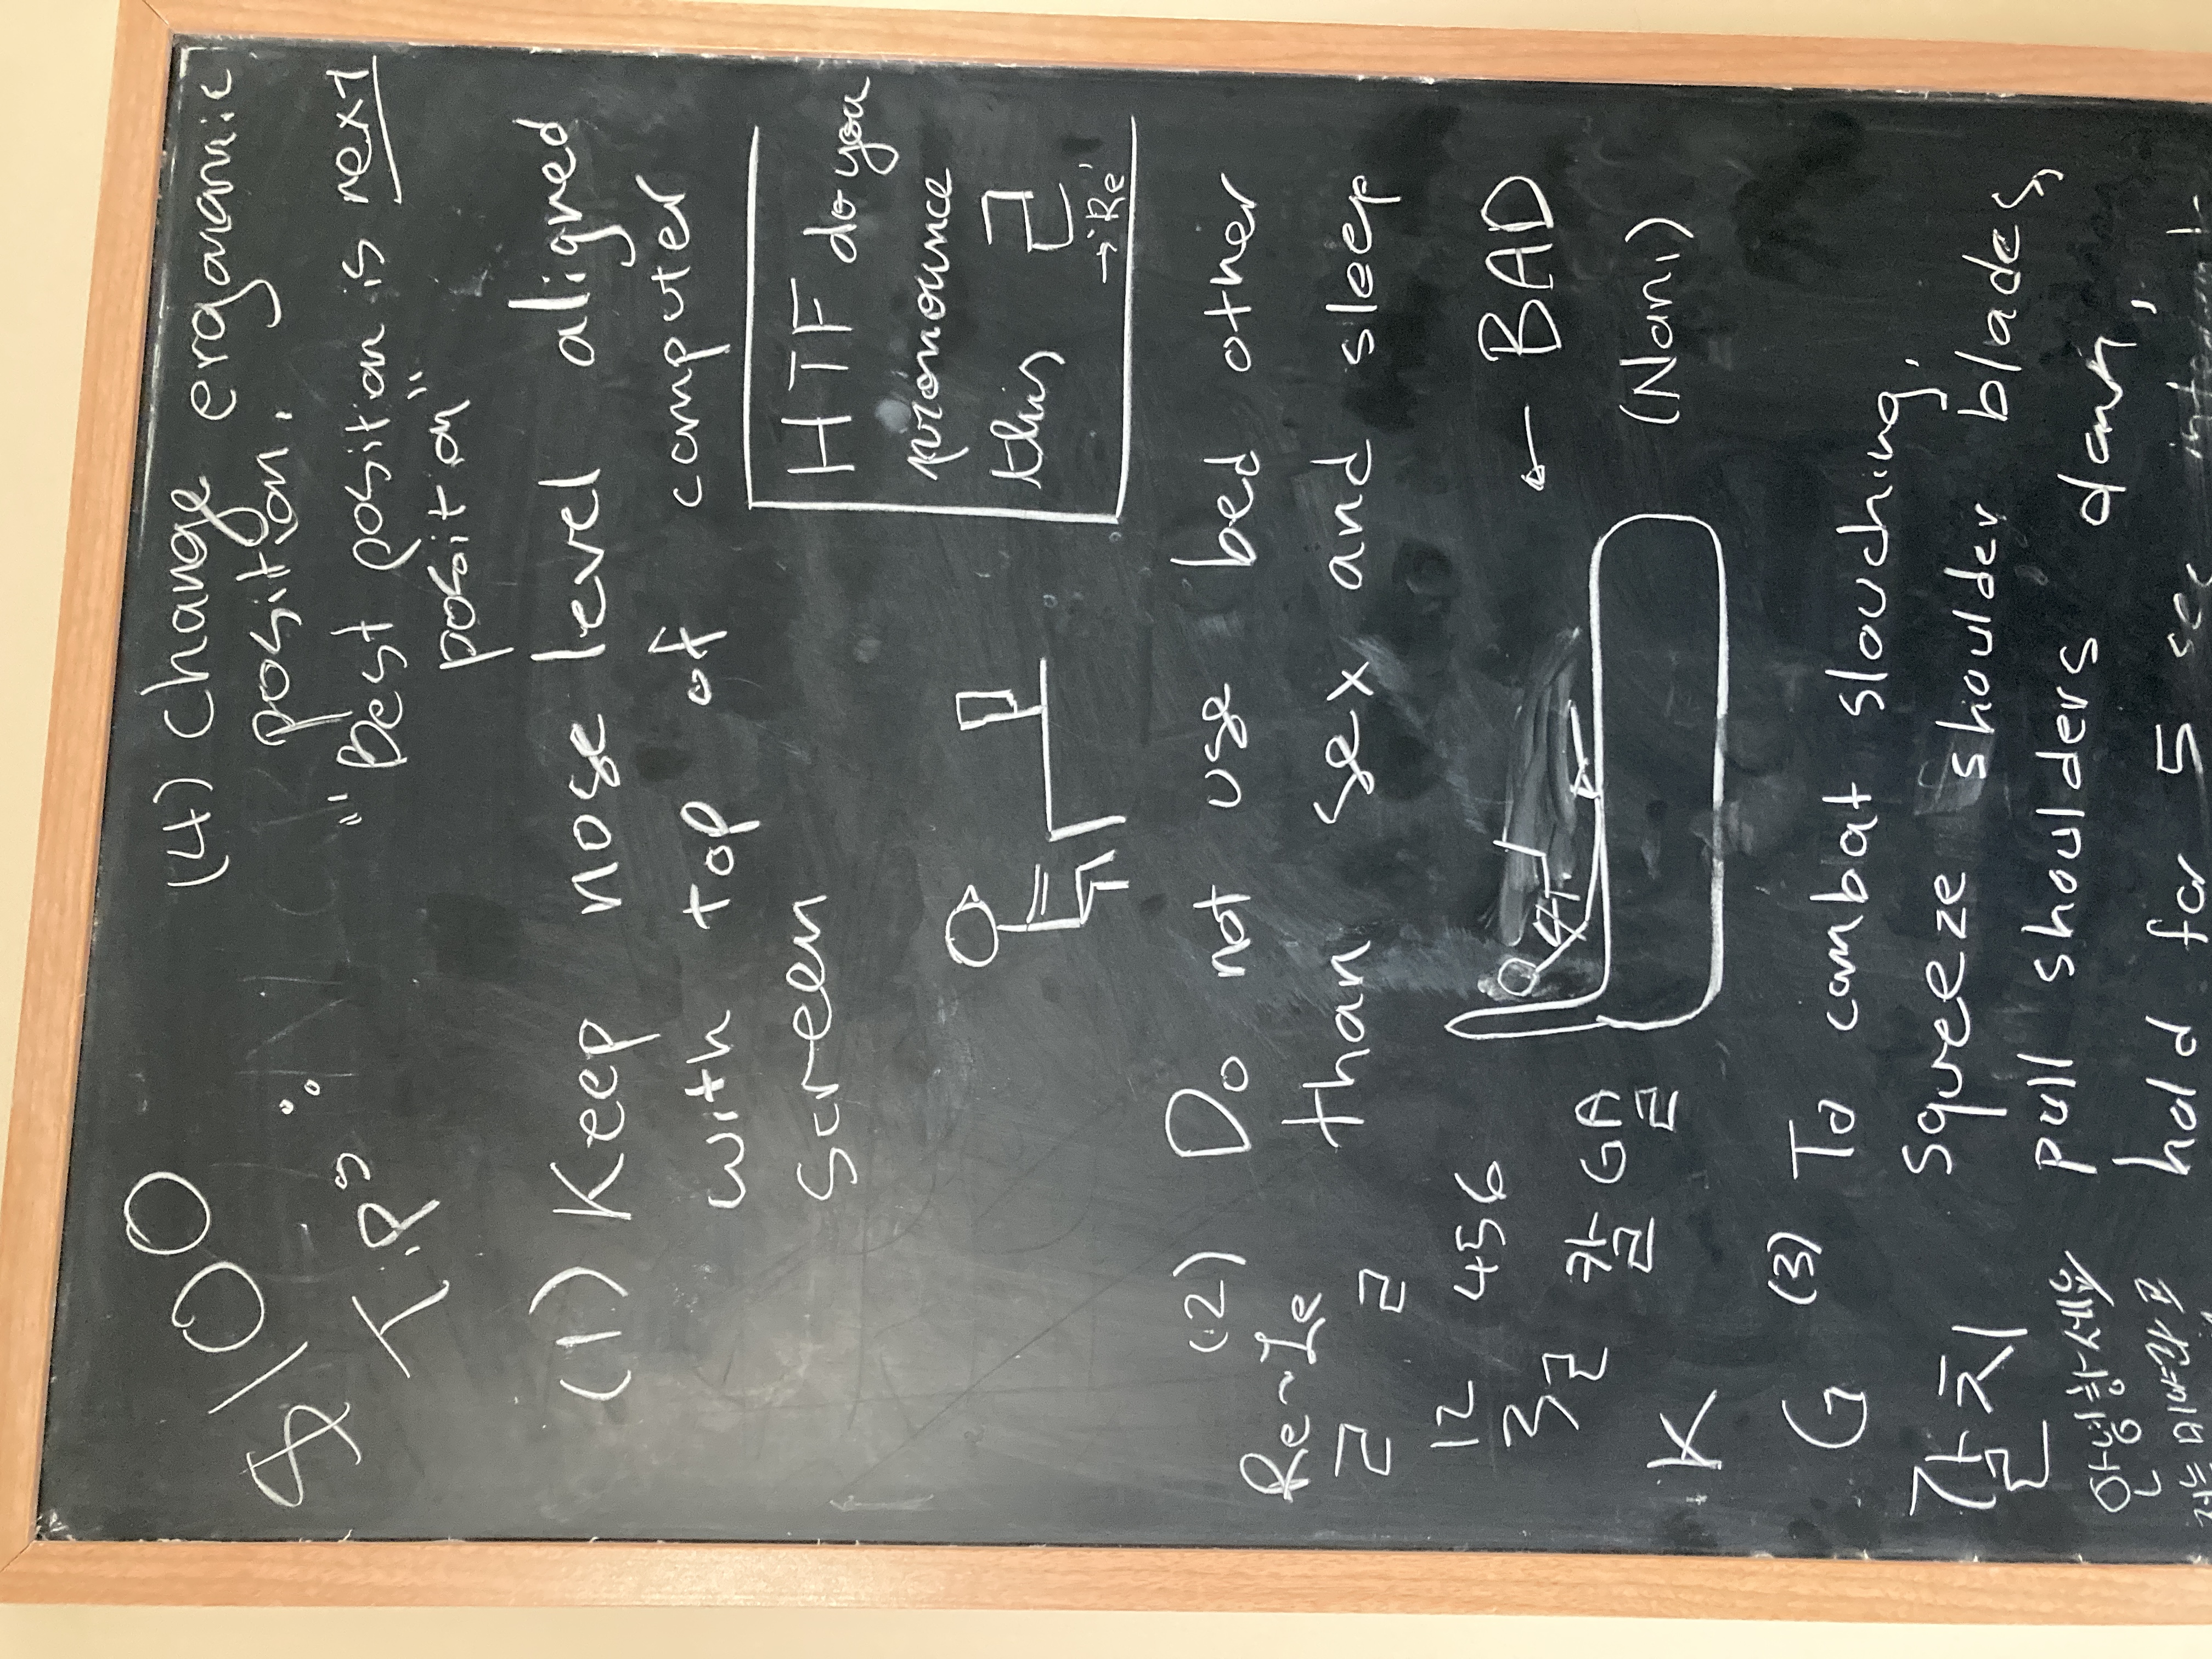 $100
TIPS:
(4) Change erganamic
position.
"Best position is next
position"
(1) Keep nose level aligned
with top of computer
screen
HTF do you
pronounce
this ㄹ
→'Re'
(2) Do not use bed other
than sex and sleep
Re~Le
ㄹ ㄹ
12 456
3
← BAD
(Nani)
K
GA
ㄹ
G
갈치
(3) To combat slouching,
squeeze shoulder blades,
pull shoulders down,
hold for 5 sec
안녕하세요